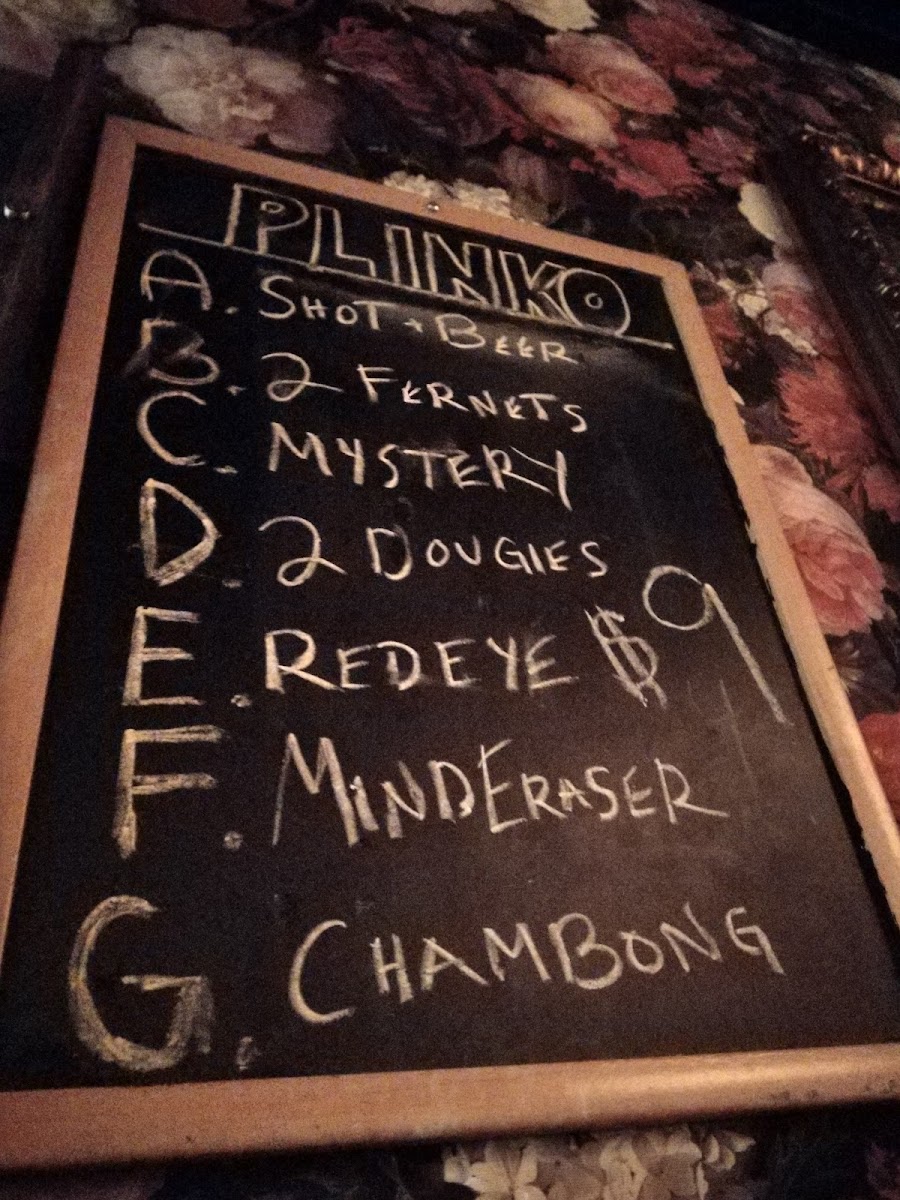 PLINKO
A. SHOT + BEER
B. 2 FERNETS
C. MYSTERY
D. 2 DOUGIES
E. REDEYE $9
F. MINDERASER
G. CHAMBONG